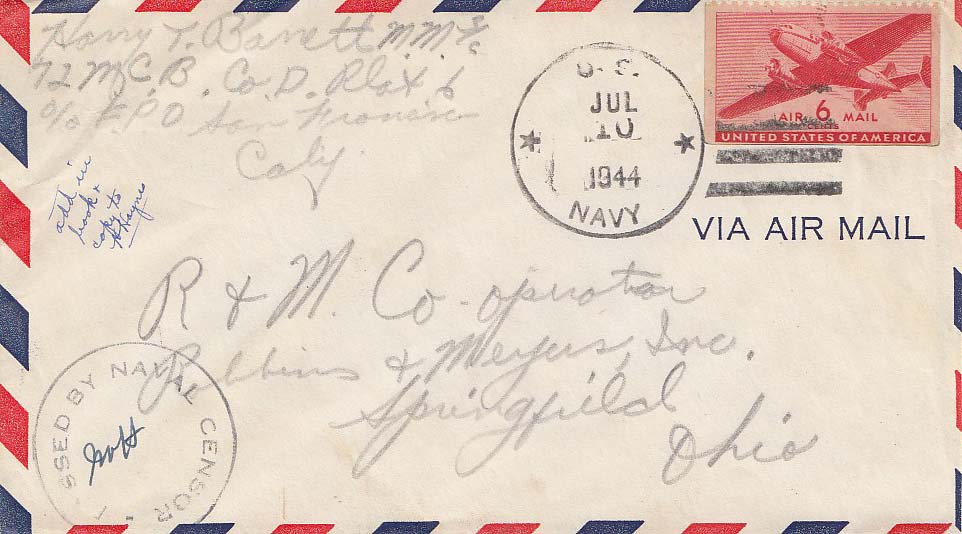 Harry T. Barrett M.M. 1/c
72 N.C.B. Co. D. Plat 6
c/o F.P.O San Francisco
Calif.
add in
book &
copy to
Haynes
U.S.
JUL
10
1944
NAVY
AIR 6 MAIL
CENTS
UNITED STATES OF AMERICA
VIA AIR MAIL
R & M. Co-operator
Robbins & Meyers, Inc.
Springfield
Ohio
SSED BY NAVAL CENSOR